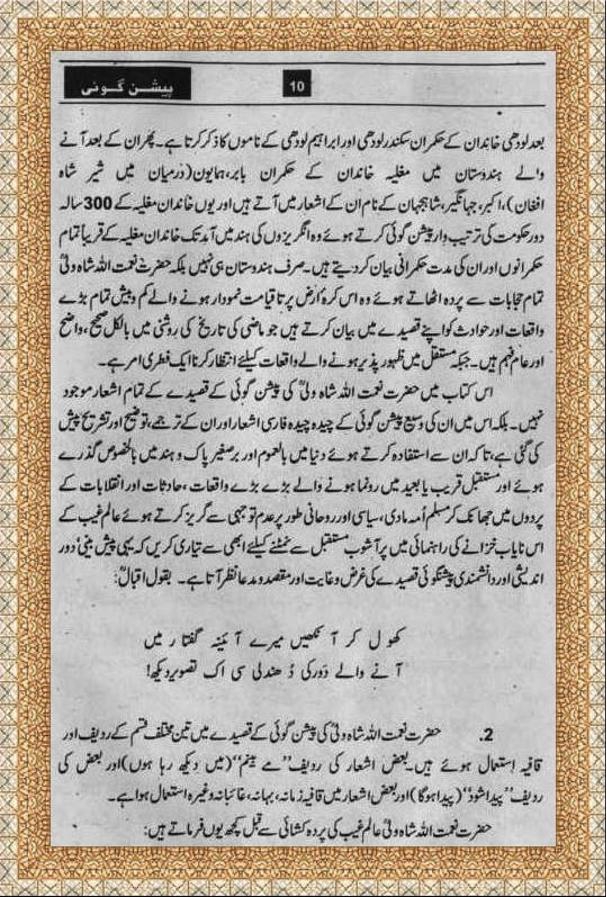 پیشن گوئی
10
بعد لودھی خاندان کے حکمران سکندر لودھی اور ابراہیم لودھی کے ناموں کا ذکر کرتا ہے۔ پھر ان کے بعد آنے
والے ہندوستان میں مغلیہ خاندان کے حکمران بابر، ہمایون (درمیان میں شیر شاہ
افغان)، اکبر، جہانگیر، شاہجہان کے نام ان کے اشعار میں آتے ہیں اور یوں خاندان مغلیہ کے 300 سالہ
دور حکومت کی ترتیب وار پیشن گوئی کرتے ہوئے وہ انگریزوں کی ہند میں آمد تک خاندان مغلیہ کے قریباً تمام
حکمرانوں اور ان کی مدت حکمرانی بیان کر دیتے ہیں۔ صرف ہندوستان ہی نہیں بلکہ حضرت نعمت اللہ شاہ ولیؒ
تمام حجابات سے پردہ اٹھاتے ہوئے وہ اس کرۂ ارض پر تا قیامت نمودار ہونے والے کم و بیش تمام بڑے
واقعات اور حوادث کو اپنے قصیدے میں بیان کرتے ہیں جو ماضی کی تاریخ کی روشنی میں بالکل صحیح، واضح
اور عام فہم ہیں۔ جبکہ مستقبل میں ظہور پذیر ہونے والے واقعات کیلئے انتظار کرنا ایک فطری امر ہے۔
اس کتاب میں حضرت نعمت اللہ شاہ ولیؒ کی پیشن گوئی کے قصیدے کے تمام اشعار موجود
نہیں۔ بلکہ اس میں ان کی وسیع پیشن گوئی کے چیدہ چیدہ فارسی اشعار اور ان کے ترجمے، توضیح اور تشریح پیش
کی گئی ہے، تاکہ ان سے استفادہ کرتے ہوئے دنیا میں بالعموم اور برصغیر پاک و ہند میں بالخصوص گذرے
ہوئے اور مستقبل قریب یا بعید میں رونما ہونے والے بڑے بڑے واقعات، حادثات اور انقلابات کے
پردوں میں جھانک کر مسلم اُمہ مادی، سیاسی اور روحانی طور پر عدم توجہی سے گریز کرتے ہوئے عالم غیب کے
اس نایاب خزانے کی راہنمائی میں پرآشوب مستقبل سے نمٹنے کیلئے ابھی سے تیاری کریں کہ یہی پیش بینی، دور
اندیشی اور دانشمندی پیشگوئی قصیدے کی غرض و غایت اور مقصد و مدعا نظر آتا ہے۔ بقول اقبالؒ:
کھول کر آنکھیں میرے آئینہ گفتار میں
آنے والے دَور کی دُھندلی سی اک تصویر دیکھ!
2. حضرت نعمت اللہ شاہ ولیؒ کی پیشن گوئی کے قصیدے میں تین مختلف قسم کے ردیف اور
قافیہ استعمال ہوئے ہیں۔ بعض اشعار کی ردیف ’’مے بینم‘‘ (میں دیکھ رہا ہوں) اور بعض کی
ردیف ’’پیدا شود‘‘ (پیدا ہوگا) اور بعض اشعار میں قافیہ زمانہ، بہانہ، غائبانہ وغیرہ استعمال ہوا ہے۔
حضرت نعمت اللہ شاہ ولیؒ عالم غیب کی پردہ کشائی سے قبل کچھ یوں فرماتے ہیں: